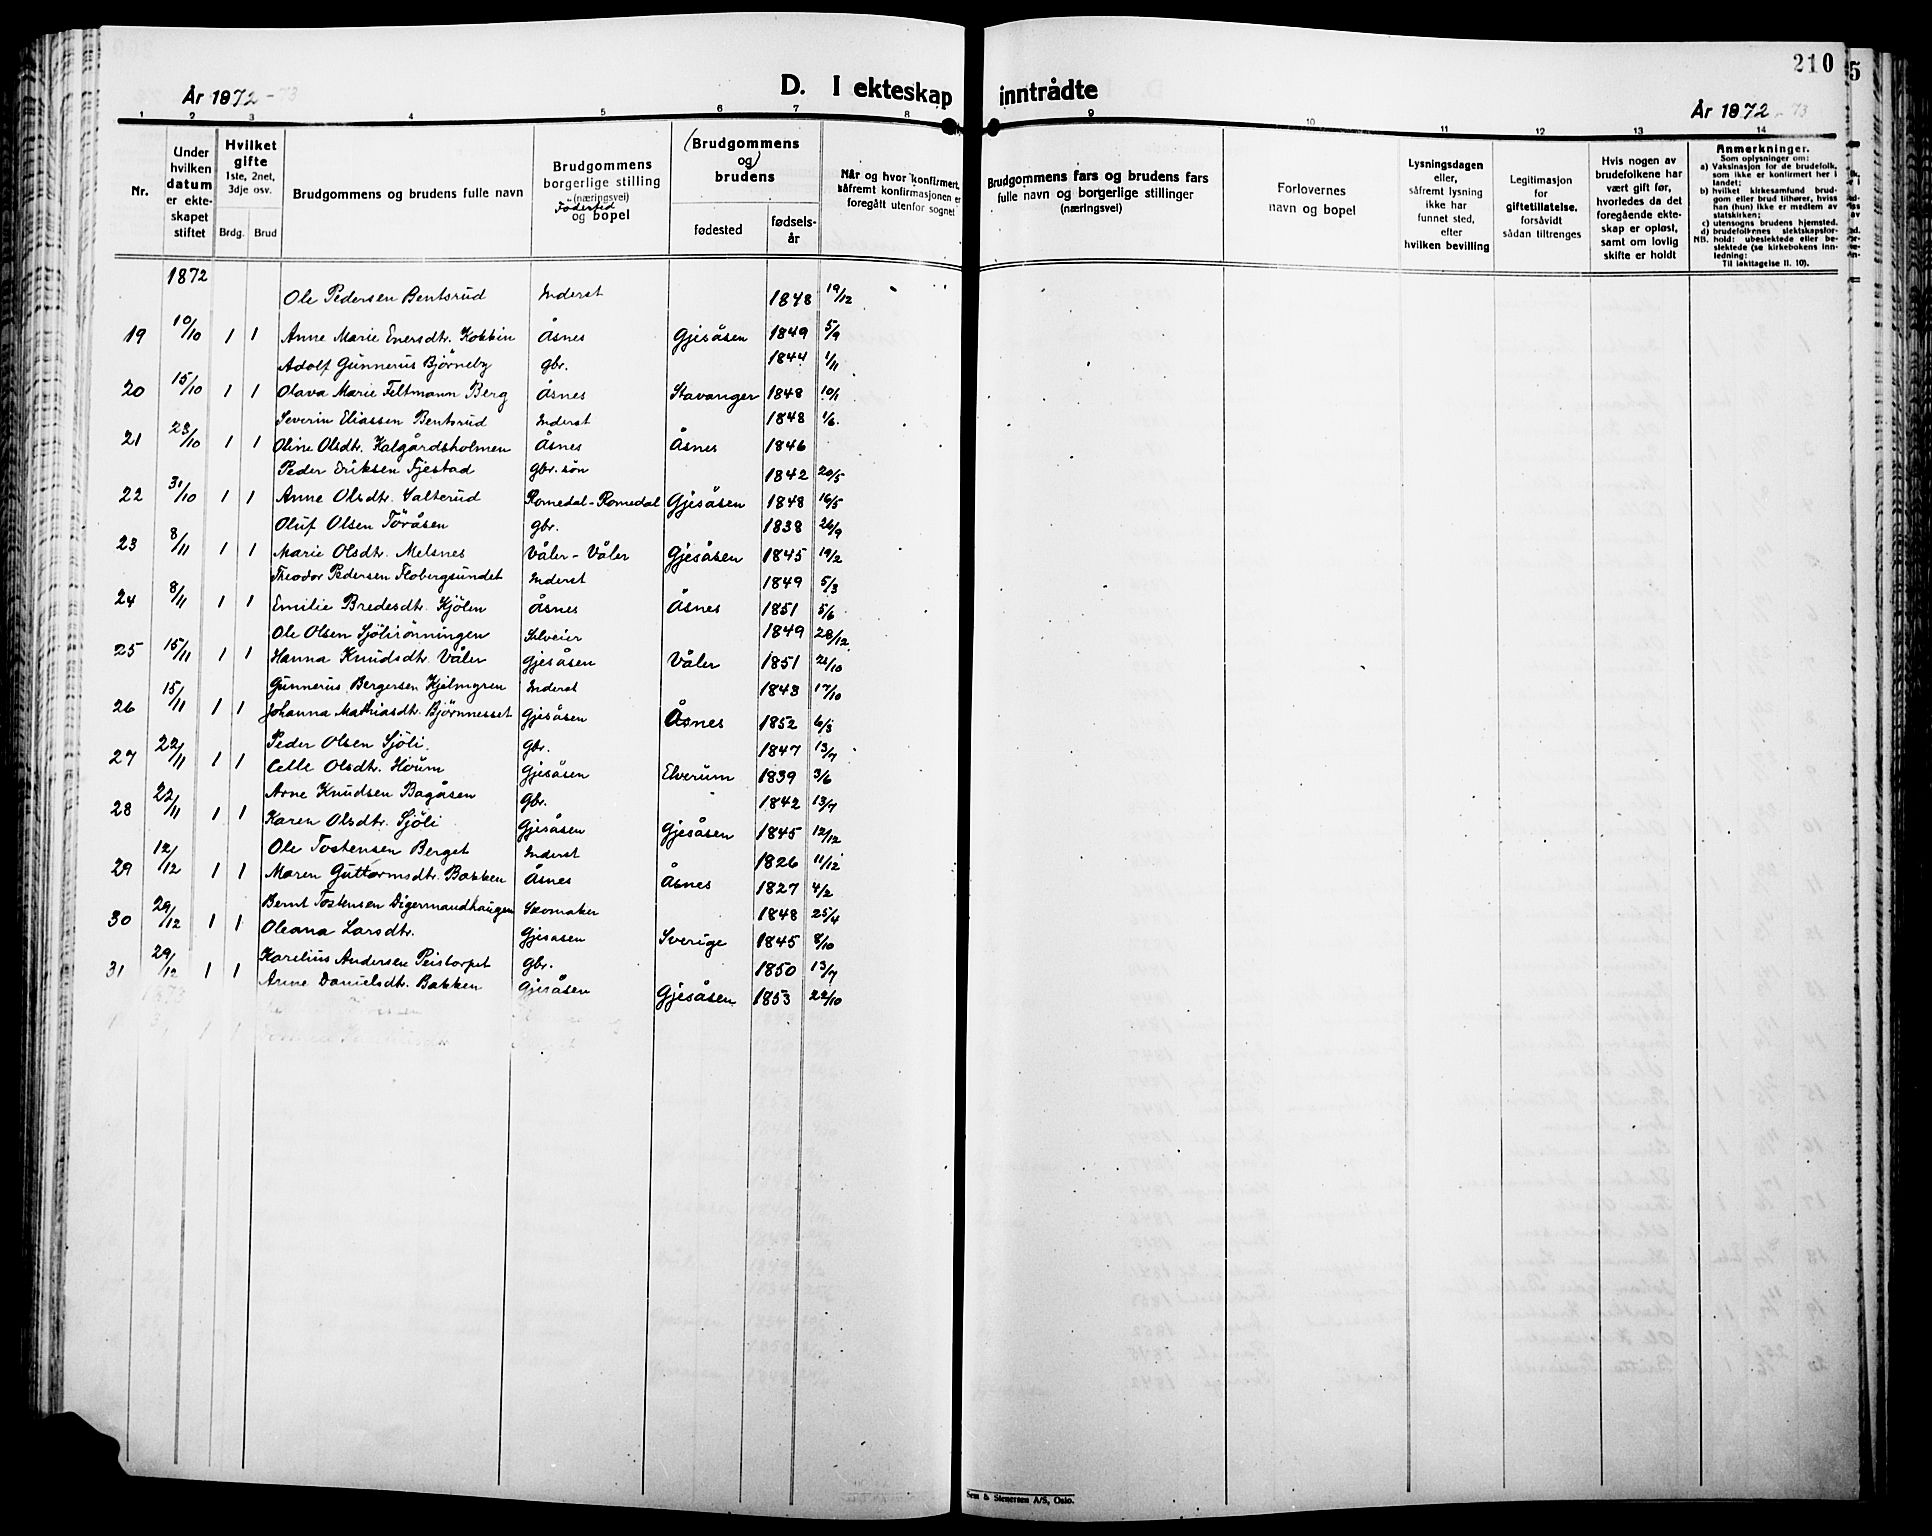 210
5
År 1872-73
D. I ekteskap
inntrådte
År 1872-73
1 2 3 4 5 6 7 8 9 10 11 12 13 14
Nr.
Under hvilken datum er ekteskapet stiftet
Hvilket gifte
1ste, 2net, 3dje osv.
Brdg. Brud
Brudgommens og brudens fulle navn
Brudgommens borgerlige stilling
(næringsvei)
Fødested
og bopel
(Brudgommens og) brudens
fødested
fødsels-år
Når og hvor konfirmert, såfremt konfirmasjonen er foregått utenfor sognet
Brudgommens fars og brudens fars
fulle navn og borgerlige stillinger
(næringsvei)
Forlovernes
navn og bopel
Lysningsdagen
eller,
såfremt lysning
ikke har
funnet sted,
efter
hvilken bevilling
Legitimasjon
for
giftetillatelse,
forsåvidt
sådan tiltrenges
Hvis nogen av
brudefolkene har
vært gift før,
hvorledes da det
foregående ekte-
skap er opløst,
samt om lovlig
skifte er holdt
Anmerkninger.
Som oplysninger om:
a) Vaksinasjon for de brudefolk,
som ikke er konfirmert her i
landet;
b) hvilket kirkesamfund brud-
gom eller brud tilhører, hviss
han (hun) ikke er medlem av
statskirken;
c) utensogns brudens hjemsted.
d) brudefolkenes slektskapsfor-
NB. hold: ubeslektede eller be-
slektede (se kirkebokens inn-
ledning;
Til iakttagelse II. 10).
1872
Ole Pedersen Bentsrud Inderst 1848 19/12
19 10/10 1 1 Anne Marie Enersdtr. Kokkin Åsnes Gjesåsen 1849 5/9
Adolf Gunnerus Bjørneby gbr. 1844 1/11
20 15/10 1 1 Olava Marie Feltmann Berg Åsnes Stavanger 1848 10/1
Severin Eliassen Bentsrud Inderst 1848 1/6.
21 23/10 1 1 Oline Olsdtr. Kalgårdsholmen Åsnes Åsnes 1846
Peder Eriksen Fjestad gbr. søn 1842 20/5
22 31/10 1 1 Anne Olsdtr. Salterud Romedal-Romedal Gjesåsen 1848 16/5
Oluf Olsen Töråsen gbr. 1838 26/9
23 8/11 1 1 Marie Olsdtr. Melsnes Våler - Våler Gjesåsen 1845 19/2
Theodor Pedersen Flobergsundet Inderst 1849 5/3
24 8/11 1 1 Emilie Bredesdtr. Kjölen Åsnes Åsnes 1851 5/6
Ole Olsen Sjölirönningen Selveier 1849 28/12
25 15/11 1 1 Hanna Knudsdtr. Våler Gjesåsen Våler 1851 21/10
Gunnerus Bergersen Hjelmgren Inderst 1843 17/10
26 15/11 1 1 Johanna Mathiasdtr. Bjørnnesset Gjesåsen Åsnes 1852 6/3
Peder Olsen Sjöli gbr. 1847 13/7
27 22/11 1 1 Celle Olsdtr. Houm Gjesåsen Elverum 1839 3/6
Arne Knudsen Bagåsen Gbr. 1842 13/7
28 22/11 1 1 Karen Olsdtr. Sjöli Gjesåsen Gjesåsen 1845 12/12
Ole Tostensen Berget Inderst 1826 11/12
29 12/12 1 1 Maren Guttormsdtr. Bakken Åsnes Åsnes 1827 4/2
Bernt Tostensen Digermandhaugen Skomaker 1848 25/4
30 29/12 1 1 Oleana Larsdtr. Gjesasen Sverige 1845 8/10
Karelius Andersen Peistorpet gbr. 1850 13/7
31 29/12 1 1 Anne Danielsdtr. Bakken Gjesåsen Gjesåsen 1853 22/10
1873
Sem & Stenersen A/S, Oslo.